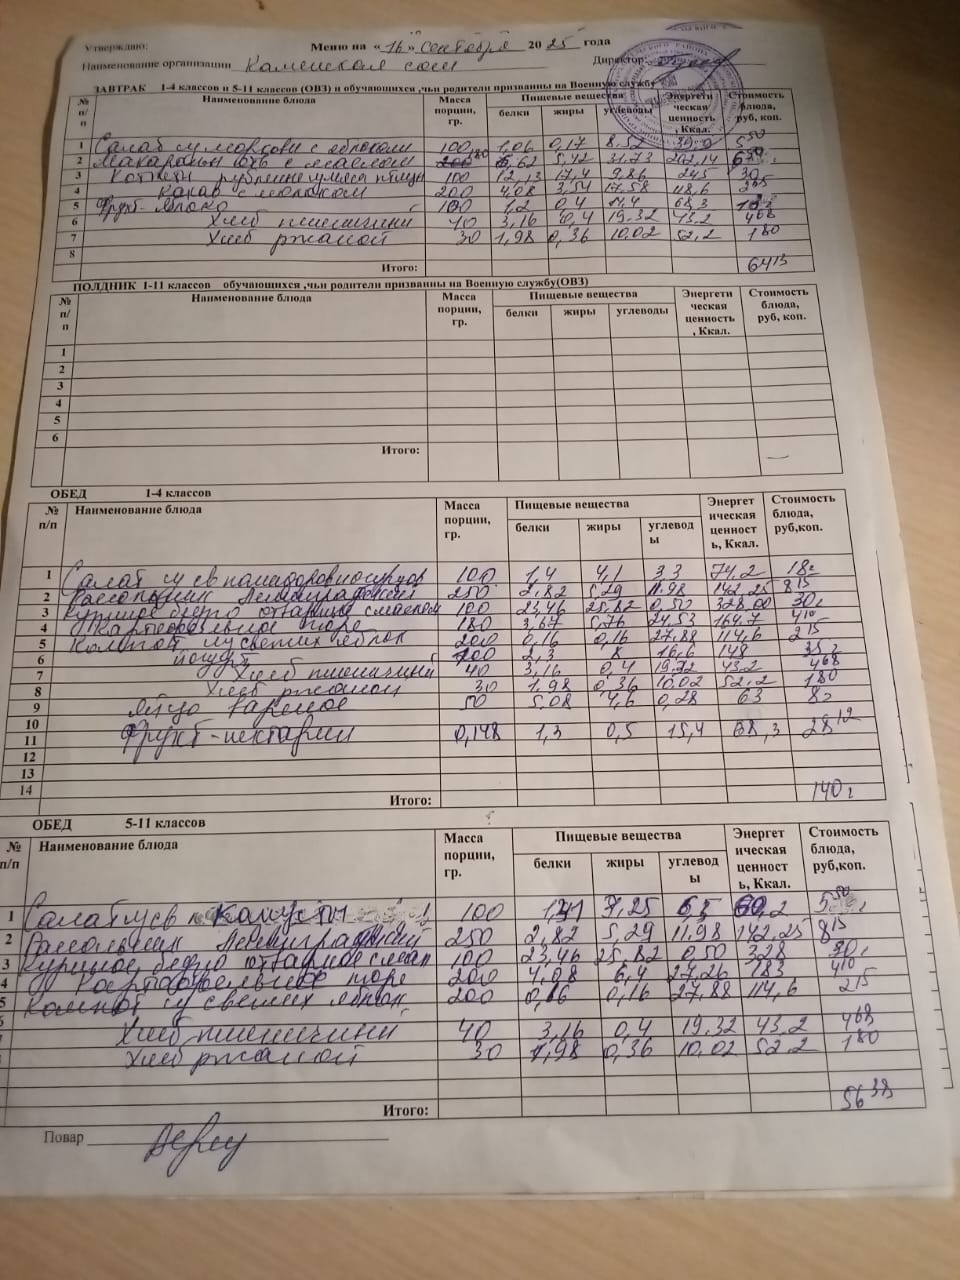 Утверждаю:
Меню на «16» сентября 2025 года
Наименование организации Каменская сош Директор:
ЗАВТРАК 1-4 классов и 5-11 классов (ОВЗ) и обучающихся ,чьи родители призванны на Военную службу
№ п/п Наименование блюда Масса порции, гр. Пищевые вещества белки жиры углеводы Энергети ческая ценность , Ккал. Стоимость блюда, руб, коп.
1 Салат из моркови с яблоками 100 1,06 0,17 8,52 39,9 5 50
2 Макароны отв с маслом 180 5,62 5,42 31.73 202,14
3 Котлеты рубленные из мяса птицы 100 12,13 17,4 9,86 245 30
4 Какао с молоком 200 4,08 3,54 17.58 118,6
5 Фрукт- яблоко 100 1,2 0,4 11,4 68,3
6 Хлеб пшеничный 40 3,16 0,4 19.32 43.2 4 68
7 Хлеб ржаной 30 1,98 0,36 10.02 52,2 1 80
8
Итого: 64 13
ПОЛДНИК 1-11 классов обучающихся ,чьи родители призванны на Военную службу(ОВЗ)
№ п/п Наименование блюда Масса порции, гр. Пищевые вещества белки жиры углеводы Энергети ческая ценность , Ккал. Стоимость блюда, руб, коп.
1
2
3
4
5
6
Итого: —
ОБЕД 1-4 классов
№ п/п Наименование блюда Масса порции, гр. Пищевые вещества белки жиры углеводы Энергет ическая ценност ь, Ккал. Стоимость блюда, руб,коп.
1 Салат из св помидоров и огурцов 100 1,4 4,1 3.3 74,2 18
2 Рассольник Ленинградский 250 2,82 5.29 11.98 142,25 8 15
3 Куриное бедро отварное с маслом 100 23,46 25,82 0,50 328,00 30
4 Картофельное пюре 180 3,67 5,76 24,53 164.7 4 10
5 Компот из свежих яблок 200 0,16 0,16 27,88 114,6 2 15
6 йогурт 100 2,3 8 16,6 148 35
7 Хлеб пшеничный 40 3,16 0,4 43.2 4 68
8 Хлеб ржаной 30 1,98 0,36 10.02 52,2 1 80
9 Яйцо вареное 50 5,08 4,6 0,28 63 8
10
11 Фрукт-нектарин 0,148 1,3 0,5 15,4 68,3 28 12
12
13
14
Итого: 140
ОБЕД 5-11 классов
№ п/п Наименование блюда Масса порции, гр. Пищевые вещества белки жиры углевод ы Энергет ическая ценност ь, Ккал. Стоимость блюда, руб,коп.
1 Салат из св капусты 100 7,25 5 50
2 Рассольник Ленинградский 250 2,82 5,29 11,98 142,25 8 15
3 Куриное бедро отварное с маслом 100 23,46 25,82 0,50 328 30
4 Картофельное пюре 200 4,08 6,4 27,26 183 4 10
5 Компот из свежих яблок 200 0,16 0,16 27,88 114,6 2 15
Хлеб пшеничный 40 3,16 0,4 19,32 43.2 4 68
Хлеб ржаной 30 1,98 0,36 10,02 52.2 1 80
Итого: 56 38
Повар